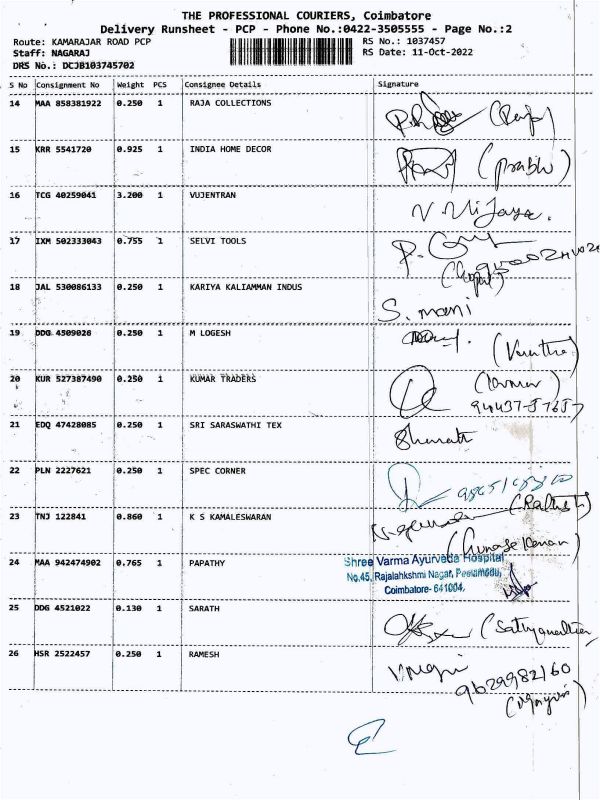 THE PROFESSIONAL COURIERS, Coimbatore
Delivery Runsheet - PCP - Phone No.:0422-3505555 - Page No.:2
Route: KAMARAJAR ROAD PCP RS No.: 1037457
Staff: NAGARAJ RS Date: 11-Oct-2022
DRS No.: DCJB103745702
S No Consignment No Weight PCS Consignee Details Signature
14 MAA 858381922 0.250 1 RAJA COLLECTIONS
15 KRR 5541720 0.925 1 INDIA HOME DECOR (prabhu)
16 TCG 40259041 3.200 1 VUJENTRAN V. Vijaya.
17 IXM 502333043 0.755 1 SELVI TOOLS
18 JAL 530086133 0.250 1 KARIYA KALIAMMAN INDUS S. mani
19 DDG 4509026 0.250 1 M LOGESH
20 KUR 527387490 0.250 1 KUMAR TRADERS
21 EDQ 47428085 0.250 1 SRI SARASWATHI TEX Bharath
22 PLN 2227621 0.250 1 SPEC CORNER
23 TNJ 122841 0.860 1 K S KAMALESWARAN
24 MAA 942474902 0.765 1 PAPATHY Shree Varma Ayurveda Hospital
No.45, Rajalahkshmi Nagar, Peelamedu,
Coimbatore- 641004.
25 DDG 4521022 0.130 1 SARATH
26 HSR 2522457 0.250 1 RAMESH
9629982160